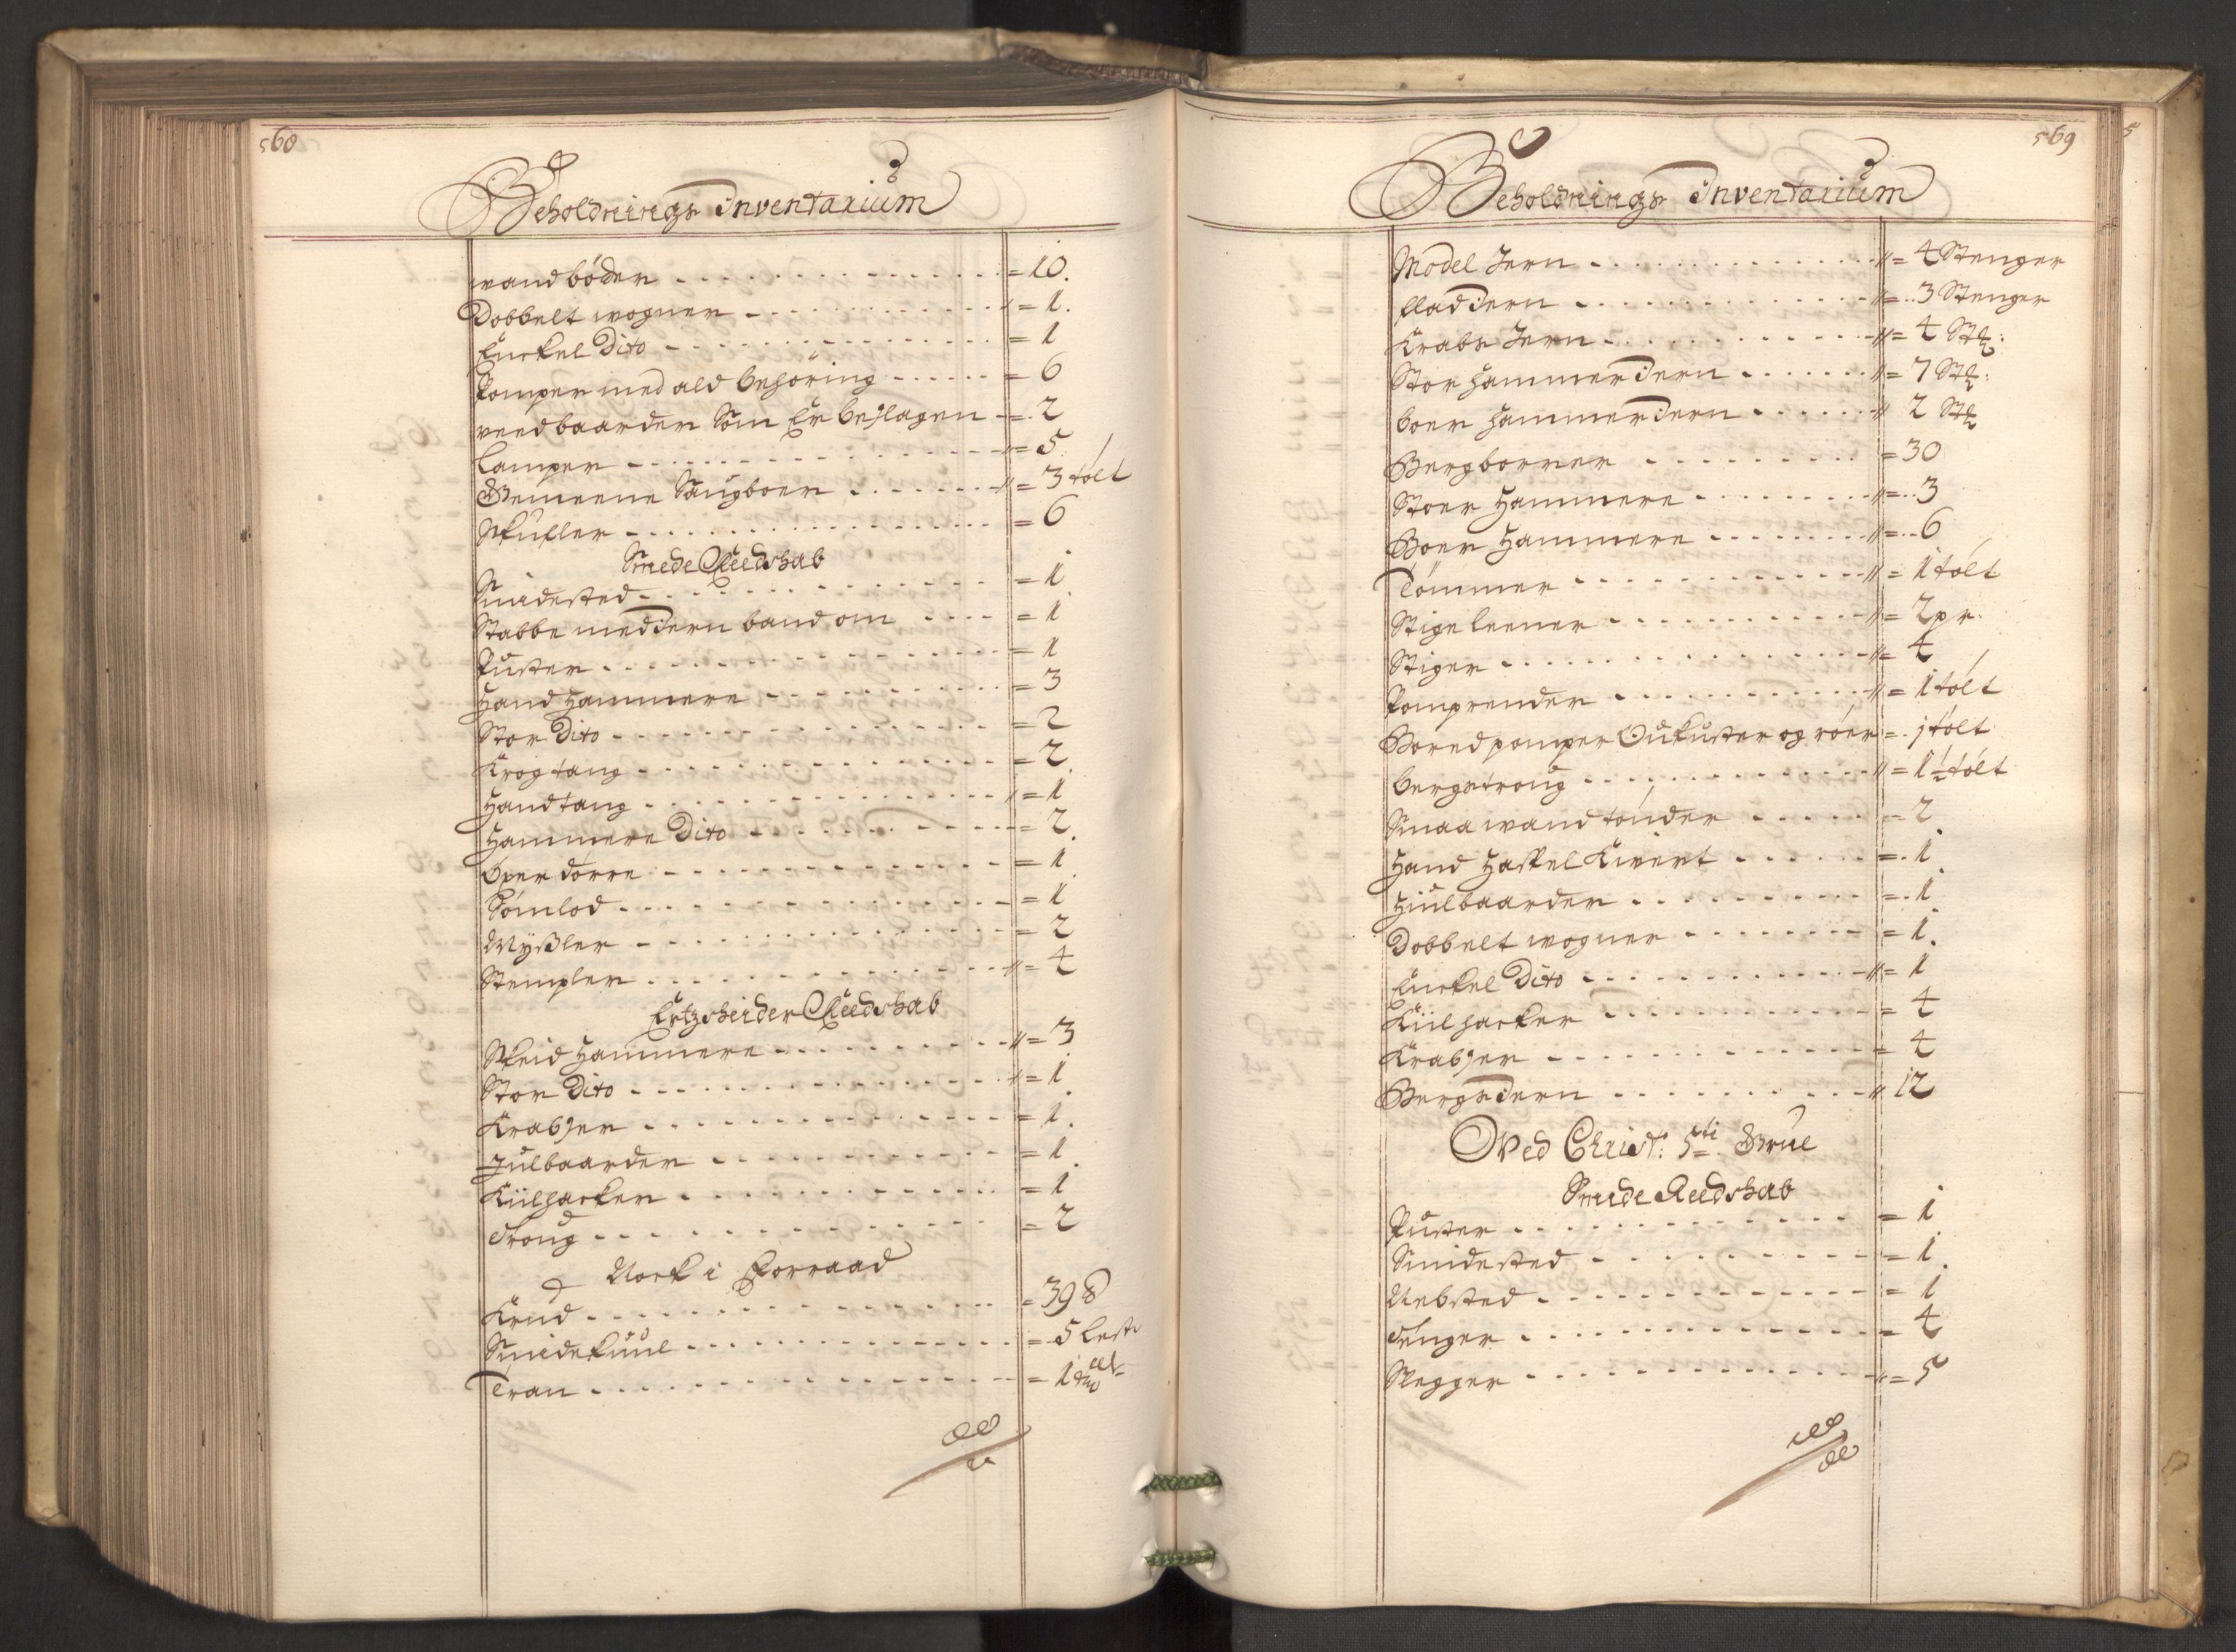 568
Beholdnings Inventarium
wandbøder = 10.
Dobbelt wogner = 1.
Enckel Dito = 1
Pomper med ald behøring = 6
veedbaarder Som Er beslagen = 2
Lamper = 5
Gemeene Saugboer = 3 tólt
Skufler = 6
Smede Reedshab
Smidested = 1
Stabbe med Jern band om = 1
Puster = 1
Hand Hammere = 3
Stor Dito = 2
Krogtang = 2
Handtang = 1
Hammere Dito = 2
dorre = 1
Sømlod = 1
Myßler = 2
Stempler = 4
Ertzsheider Reedshab
Skeid Hammere = 3
Stor Dito = 1
Krabzer = 1.
Julbaarder = 1
Kiilhacker = 1
Troug = 2
Nock i Forraad
Krud = 39 ℔
Smidekuul = 5 Lest
Tran = 1
569
Beholdnings Inventarium
Model Jern = 4 Stenger
flad Jern = 3 Stenger
Krabs Jern = 4 St:
Stor Hammer Jern = 7 St:
boer Hammer Jern 2 St
Bergborer = 30
Stoer Hammere = 3
Boer Hammere = 6
Tømmer = 1 tólt
Stige leener = 2 pr.
Stiger = 4
Pomprender = 1 tólt
Bored pomper og róer = 1 tólt
bergstroug = 1½ tólt
Smaa wand tónder = 2
Hand Haspel = 1
Hiulbaarder = 1
Dobbelt wogner = 1.
Enckel Dito = 1
Kiilhacker = 4
Krabzer = 4
Bergs Jern 12
Wed Christ: 5ti Grue
Smide Reedshab
Puster = 1
Smidested = 1
Nebsted = 1
Tenger = 4
Slegger = 5